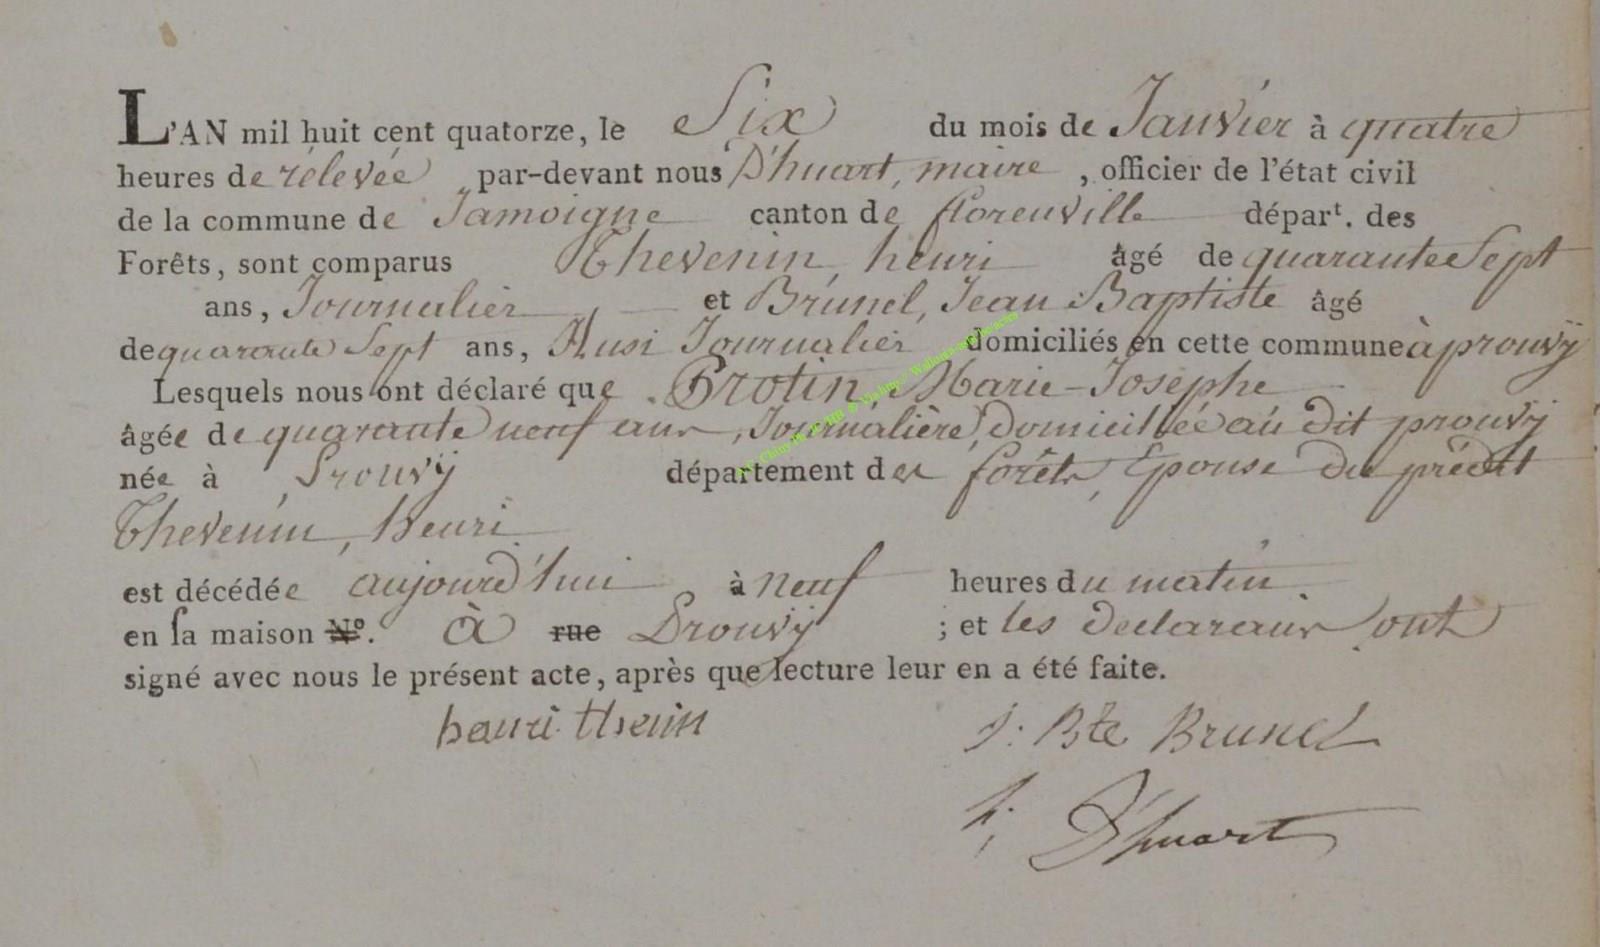 L'AN mil huit cent quatorze, le Six du mois de Janvier à quatre
heures de rélevée par-devant nous D'huart, maire, officier de l'état civil
de la commune de Jamoigne canton de florenville départ. des
Forêts, sont comparus Thevenin, henri âgé de quarante Sept
ans, Journalier et Brunel, Jean Baptiste âgé
de quarante Sept ans, Ausi Journalier domiciliés en cette commune à prouvÿ
Lesquels nous ont déclaré que Protin, Marie-Josephe
âgée de quarante neuf ans, Journalière, domiciliée au dit prouvÿ
née à Prouvÿ département des forêts, Epouse du prédit
Thevenin, henri
est décédée aujourd'hui à neuf heures du matin
en sa maison N°. à rue Prouvÿ ; et les declarans ont
signé avec nous le présent acte, après que lecture leur en a été faite.
henri
J: Bte Brunel
D'huart